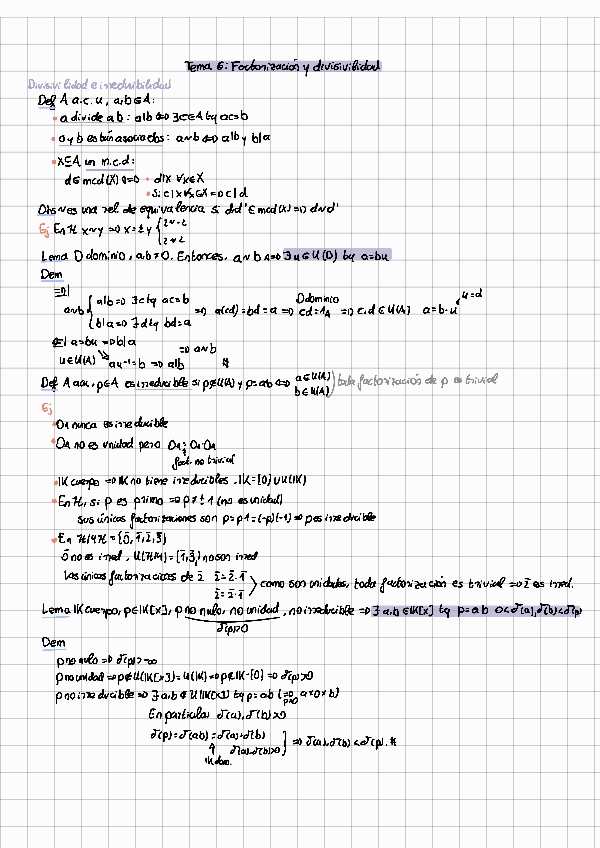 Tema 6: Factorización y divisivilidad
Divisivilidad e irreducibilidad
Def A a.c.u, a,b∈A:
• a divide a b: a|b ⇔ ∃c∈A tq ac=b
• a y b están asociados: a∼b ⇔ a|b y b|a
• X⊆A un m.c.d:
d∈mcd(X) ⇔ • d|x ∀x∈X
• Si c|x ∀x∈X ⇒ c|d
Obs ∼ es una rel. de equivalencia si d,d'∈mcd(X) ⇒ d∼d'
Ej En ℤ x∼y ⇒ x=±y { 2∼-2
2∼2
Lema D dominio, a,b≠0. Entonces, a∼b ⇔ ∃u∈U(D) tq a=bu
Dem
⇒| a∼b { a|b ⇒ ∃c tq ac=b
b|a ⇒ ∃d tq bd=a
⇒ a(cd)=bd=a ⇒ cd=1A ⇒ c,d∈U(A) a=b·u u=d
D dominio
⇐| a=bu ⇒ b|a
u∈U(A) au⁻¹=b ⇒ a|b ⇒ a∼b #
Def A acu, p∈A es irreducible si p∉U(A) y p=ab ⇔ a∈U(A) ó b∈U(A) } toda factorización de p es trivial
Ej
• 0A nunca es irreducible
• 0A no es unidad pero 0A=0A·0A
fact. no trivial
• IK cuerpo ⇒ IK no tiene irreducibles. IK={0}∪U(IK)
• En ℤ, si p es primo ⇒ p≠±1 (no es unidad)
sus únicas factorizaciones son p=p·1=(-p)(-1) ⇒ p es irreducible
• En ℤ/4ℤ={0̄,1̄,2̄,3̄}
0̄ no es irred, U(ℤ/4)={1̄,3̄} no son irred
Las únicas factorizaciones de 2̄ 2̄=2̄·3̄
2̄=2̄·1̄ } como son unidades, toda factorización es trivial ⇒ 2̄ es irred.
Lema IK cuerpo, p∈IK[x], p no nulo, no unidad, no irreducible ⇒ ∃a,b∈IK[x] tq p=ab 0<δ(a),δ(b)<δ(p)
δ(p)>0
Dem
p no nulo ⇒ δ(p)>-∞
p no unidad ⇒ p∉U(IK[x])=U(IK) ⇒ p∉IK-{0} ⇒ δ(p)>0
p no irreducible ⇒ ∃a,b∉U(IK[x]) tq p=ab (⇒ a≠0≠b)
p≠0
En particular δ(a),δ(b)>0
δ(p)=δ(ab)=δ(a)+δ(b)
δ(a),δ(b)>0 } ⇒ δ(a),δ(b)<δ(p). #
IK dom.